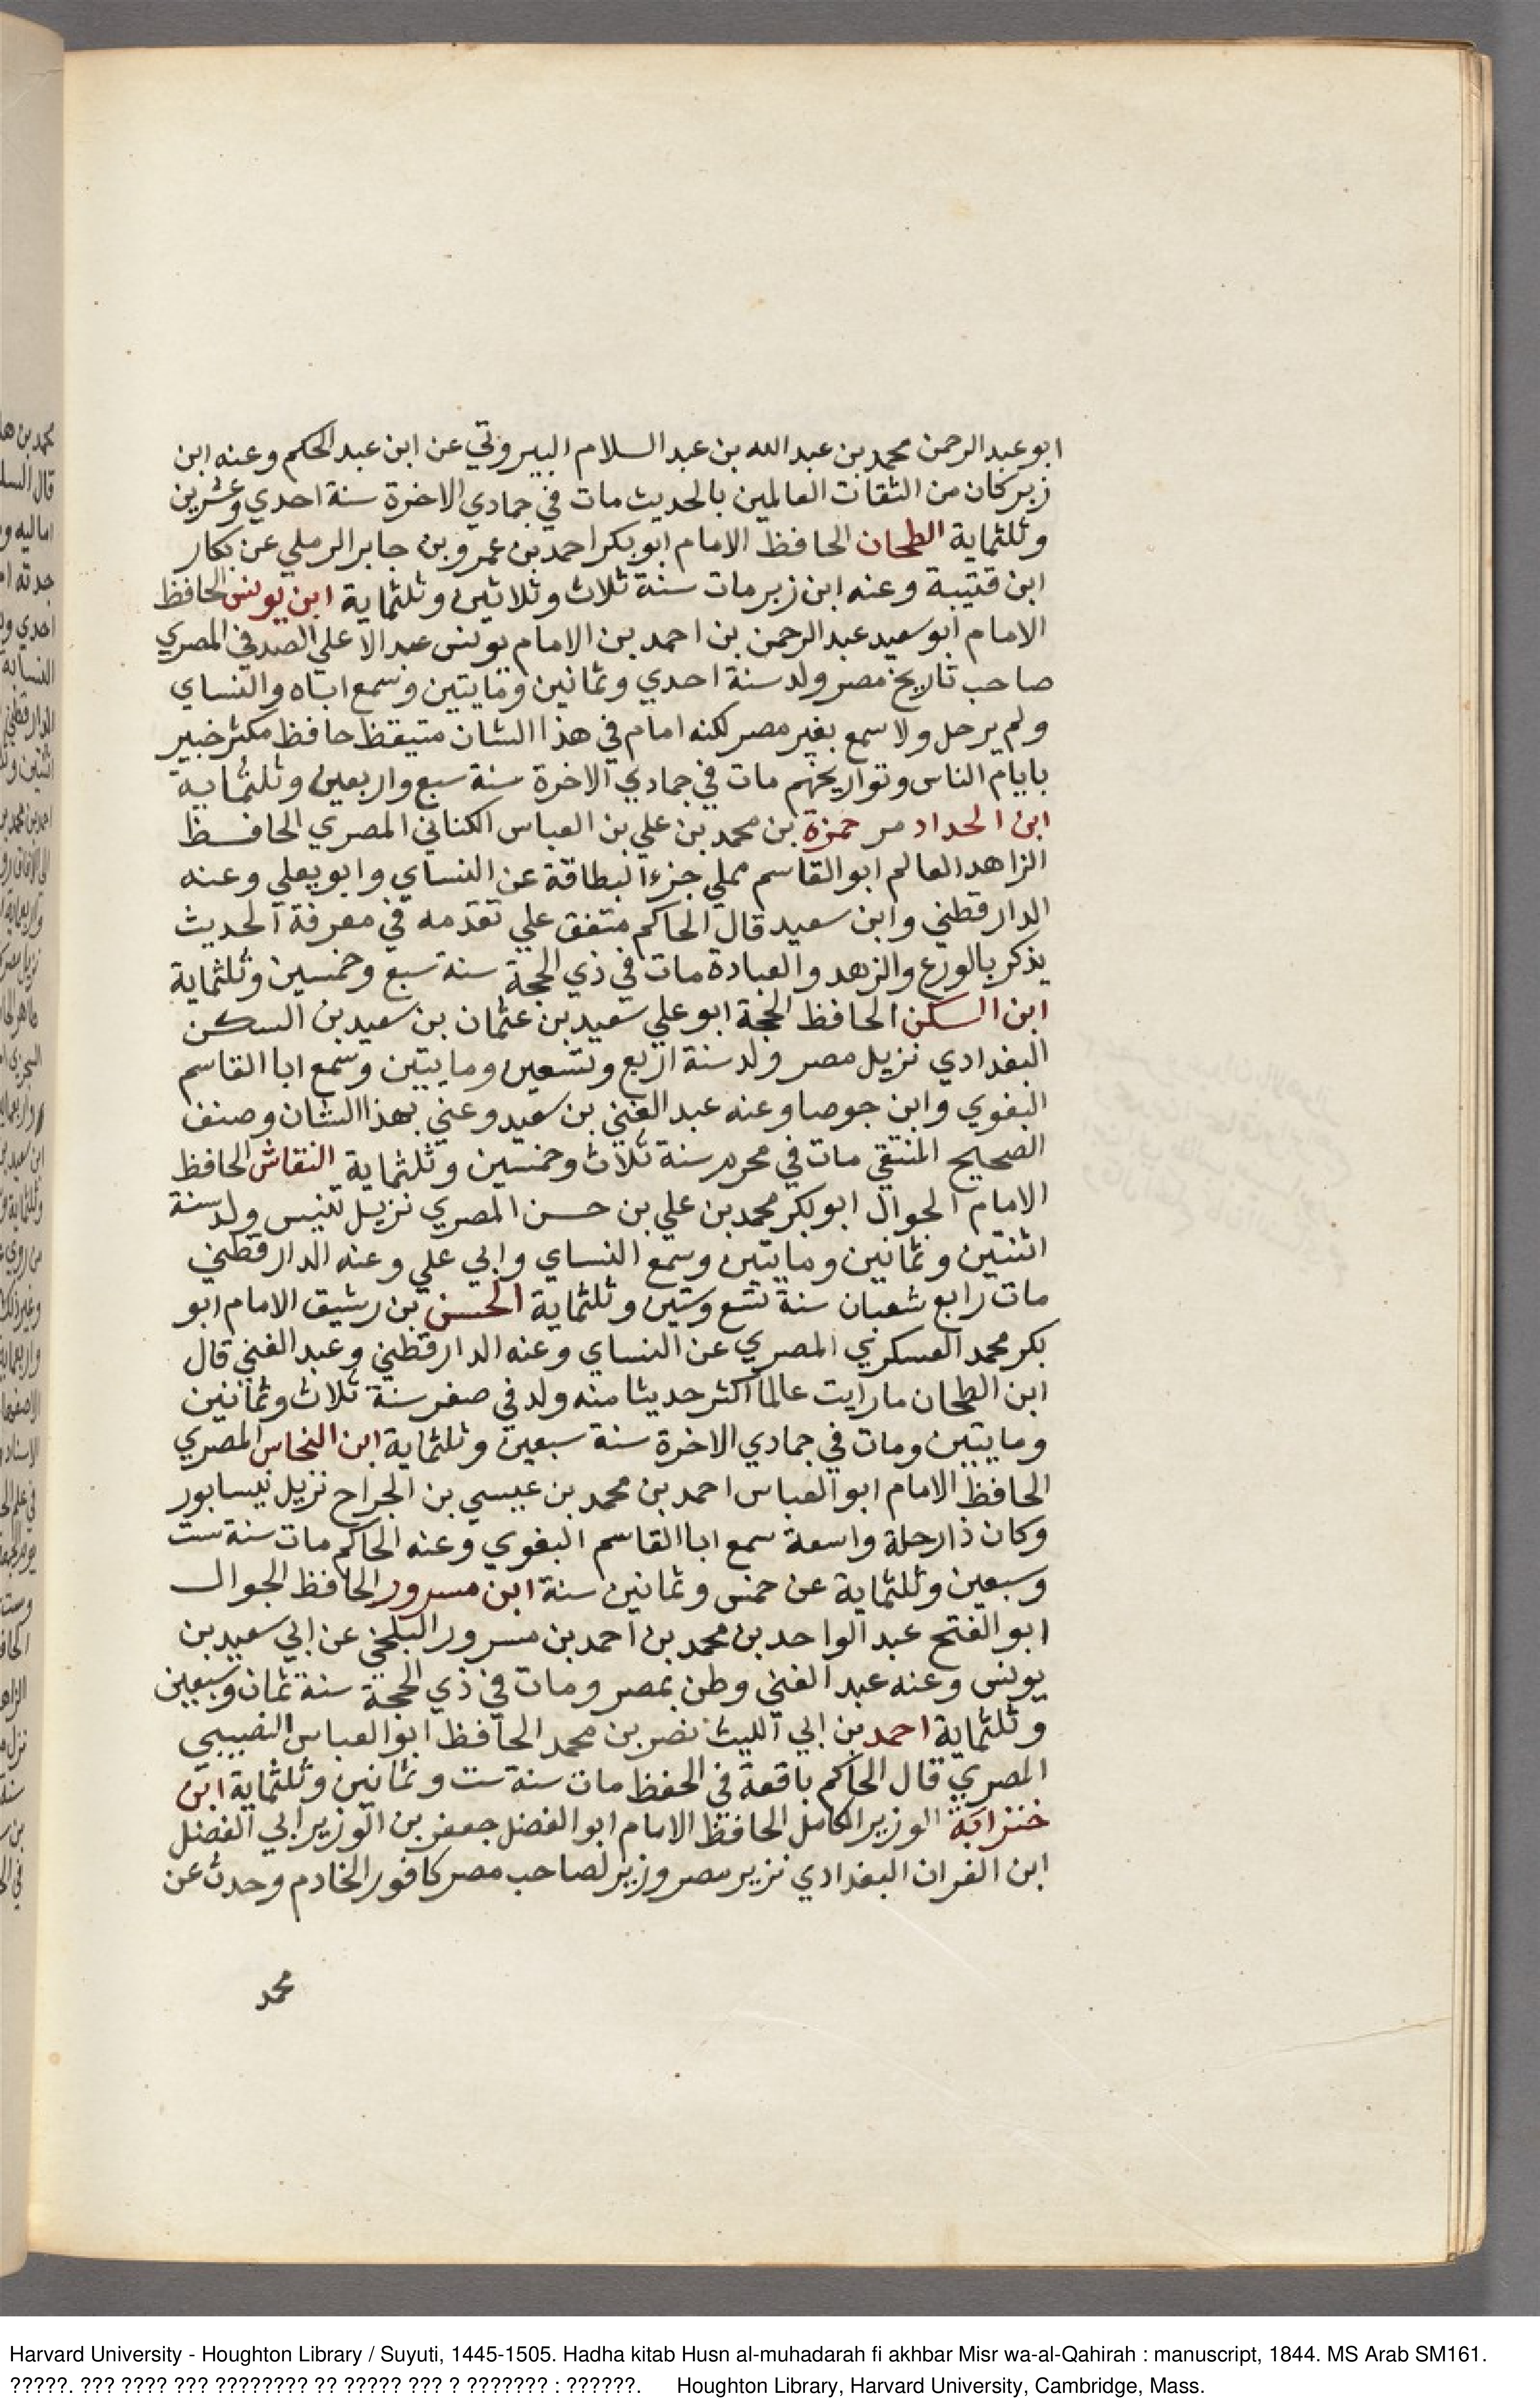 ابو عبد الرحمن محمد بن عبد الله بن عبد السلام البيروتي عن ابن عبد الحكم وعنه ابن
زبر كان من الثقات العالمين بالحديث مات في جمادي الاخرة سنة احدي وعشرين
وثلثماية الطحان الحافظ الامام ابو بكر احمد بن عمرو بن جابر الرملي عن بكار
ابن قتيبة وعنه ابن زبر مات سنة ثلاث وثلاثين وثلثماية ابن يونس الحافظ
الامام ابو سعيد عبد الرحمن بن احمد بن الامام يونس عبد الاعلي الصدفي المصري
صاحب تاريخ مصر ولد سنة احدي وثمانين ومايتين وسمع اباه والنساي
ولم يرحل ولا سمع بغير مصر لكنه امام في هذا الشان متيقظ حافظ مكثر خبير
بايام الناس وتواريخهم مات في جمادي الاخرة سنة سبع واربعين وثلثماية
ابن الحداد مر حمزة بن محمد بن علي بن العباس الكناني المصري الحافظ
الزاهد العالم ابو القاسم مملي جزء البطاقة عن النساي وابو يعلي وعنه
الدارقطني وابن سعيد قال الحاكم متفق علي تقدمه في معرفة الحديث
يذكر بالورع والزهد والعبادة مات في ذي الحجة سنة سبع وخمسين وثلثماية
ابن السكن الحافظ الحجة ابو علي سعيد بن عثمان بن سعيد بن السكن
البغدادي نزيل مصر ولد سنة اربع وتسعين ومايتين وسمع ابا القاسم
البغوي وابن جوصا وعنه عبد الغني بن سعيد وعني بهذا الشان وصنف
الصحيح المنتقي مات في محرم سنة ثلاث وخمسين وثلثماية النقاش الحافظ
الامام الجوال ابو بكر محمد بن علي بن حسن المصري نزيل تنيس ولد سنة
اثنتين وثمانين ومايتين وسمع النساي وابي علي وعنه الدارقطني
مات رابع شعبان سنة تسع وستين وثلثماية الحسن بن رشيق الامام ابو
بكر محمد العسكري المصري عن النساي وعنه الدارقطني وعبد الغني قال
ابن الطحان ما رايت عالما اكثر حديثا منه ولد في صفر سنة ثلاث وثمانين
ومايتين ومات في جمادي الاخرة سنة سبعين وثلثماية ابن النحاس المصري
الحافظ الامام ابو العباس احمد بن محمد بن عيسي بن الجراح نزيل نيسابور
وكان ذا رحلة واسعة سمع ابا القاسم البغوي وعنه الحاكم مات سنة ست
وسبعين وثلثماية عن خمس وثمانين سنة ابن مسرور الحافظ الجوال
ابو الفتح عبد الواحد بن محمد بن احمد بن مسرور البلخي عن ابي سعيد بن
يونس وعنه عبد الغني وطن بمصر ومات في ذي الحجة سنة ثمان وسبعين
وثلثماية احمد بن ابي الليث نصر بن محمد الحافظ ابو العباس النصيبي
المصري قال الحاكم باقعة في الحفظ مات سنة ست وثمانين وثلثماية ابن
خنزابة الوزير الكامل الحافظ الامام ابو الفضل جعفر بن الوزير ابي الفضل
ابن الفران البغدادي نزير مصر وزير لصاحب مصر كافور الخادم وحدث عن
محمد
Harvard University - Houghton Library / Suyuti, 1445-1505. Hadha kitab Husn al-muhadarah fi akhbar Misr wa-al-Qahirah : manuscript, 1844. MS Arab SM161.
?????. ??? ???? ??? ???????? ?? ????? ??? ? ??????? : ??????. Houghton Library, Harvard University, Cambridge, Mass.